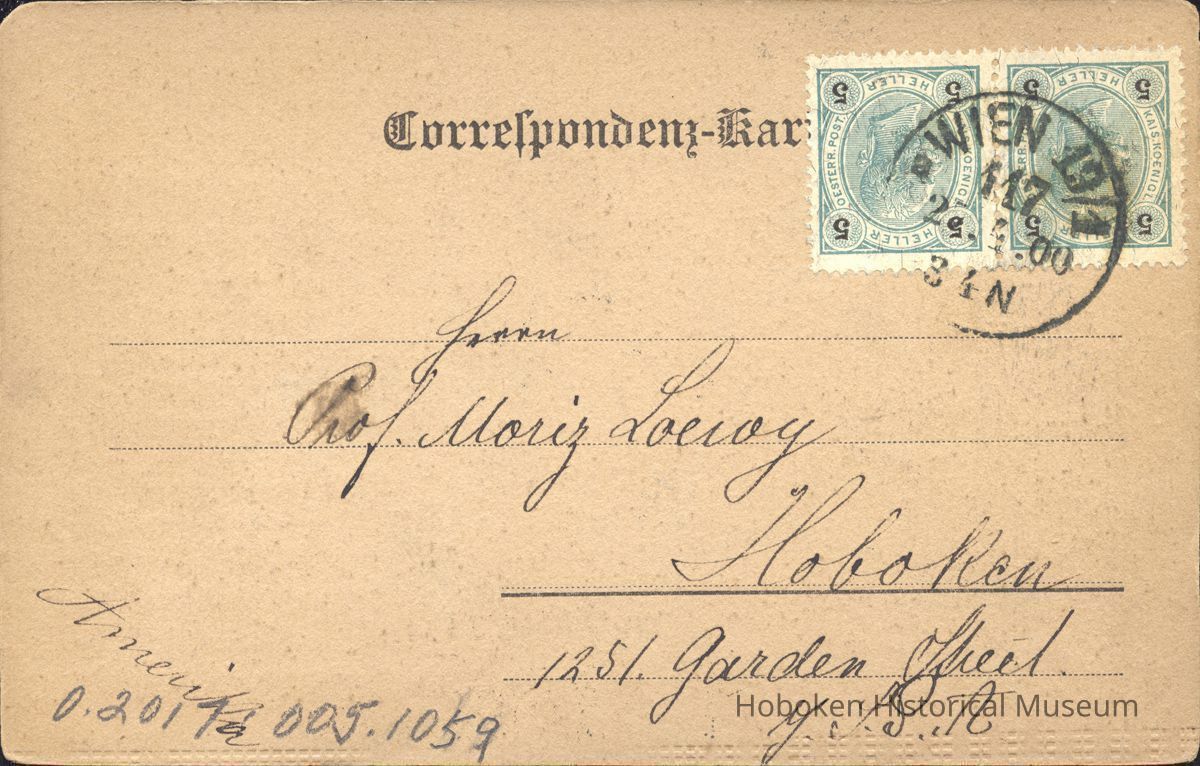 Correspondenz-Kar
5 HELLER 5
OESTERR. POST. KOENIGL
5 HELLER 5
5 HELLER 5
KAIS. KOENIGL
5 5
WIEN 19/1
117
00
3 4 N
Herrn
Prof. Moriz Loewy
Hoboken
1251. Garden Street.
Amerika
0.2017. 005.1059
Hoboken Historical Museum